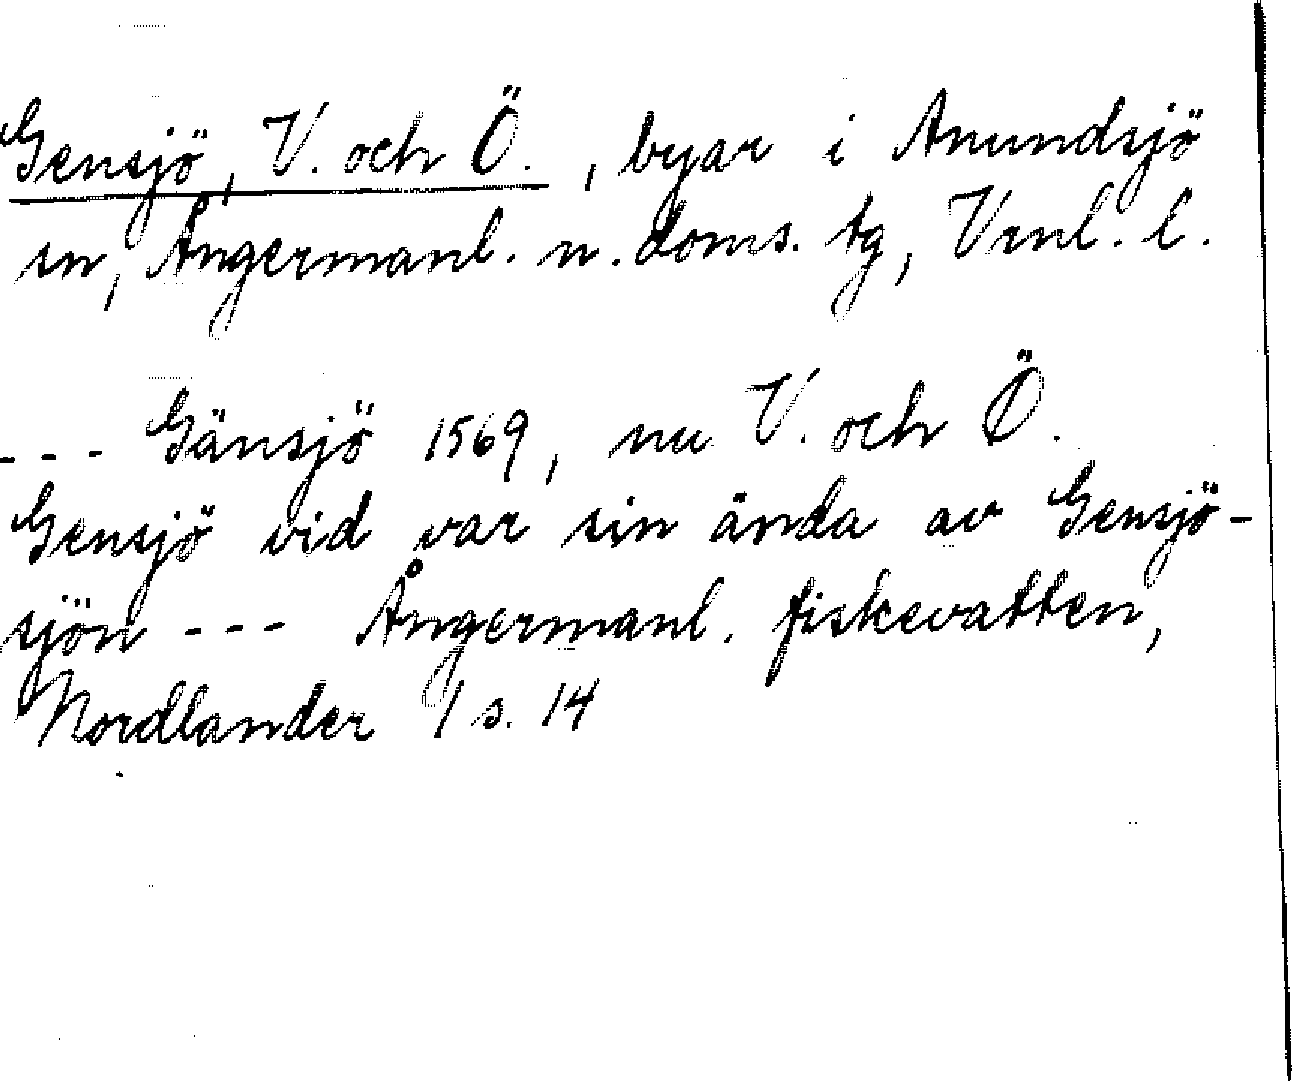 Gensjö, V. och Ö., byar i Anundsjö
sn, Ångermanl. n. doms. tg, Vnl. l.
--- Gänsjö 1569, nu V. och Ö.
Gensjö vid var sin ända av Gensjö-
sjön --- Ångermanl. fiskevatten,
Nordlander 1 s. 14